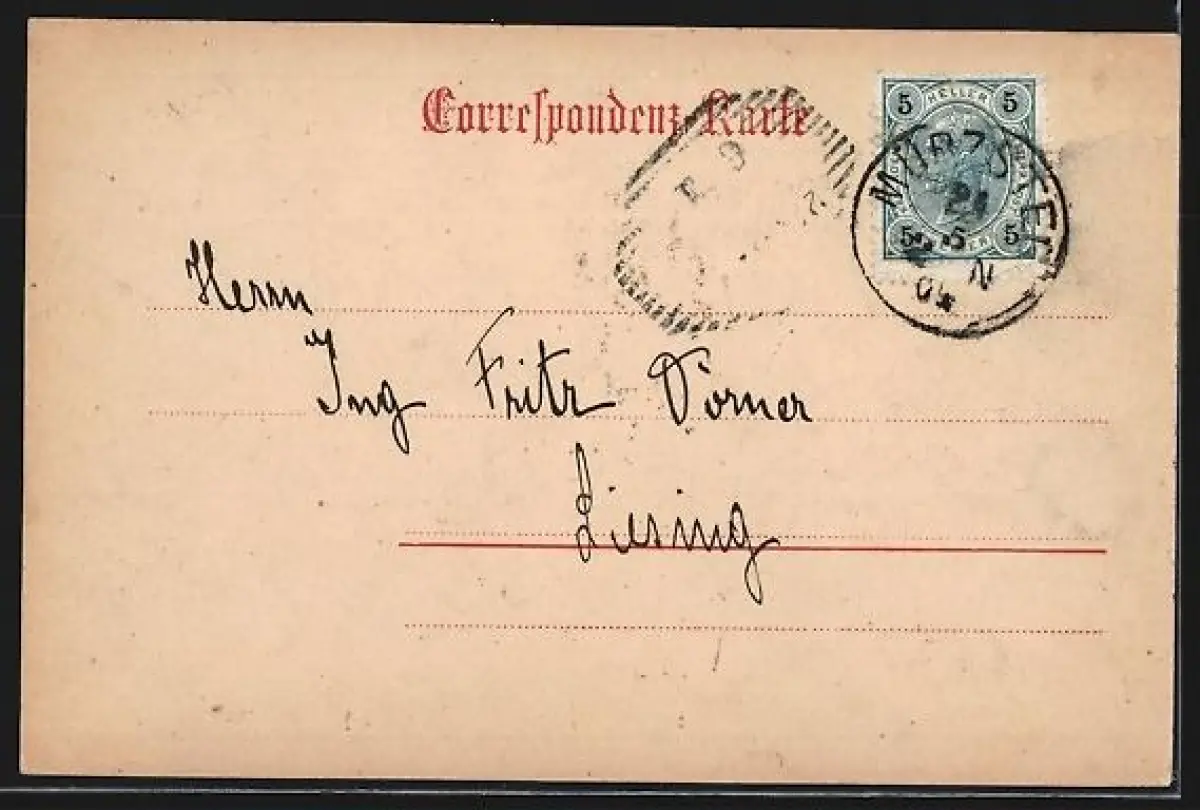 Correspondenz-Karte
5 HELLER 5
MÜRZSTEG
5 5
Herrn
Ing Fritz Dorner
Liesing